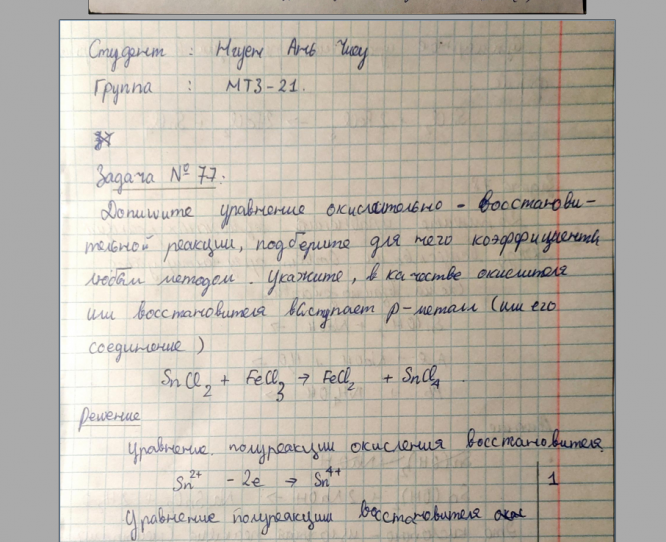 Студент : Нгуен Ань Чиеу
Группа : МТ3-21.
Задача № 77.
Допишите уравнение окислительно - восстанови-
тельной реакции, подберите для него коэффициенты
любым методом. Укажите, в качестве окислителя
или восстановителя выступает р-металл (или его
соединение)
SnCl2 + FeCl3 → FeCl2 + SnCl4.
Решение
Уравнение полуреакции окисления восстановителя
Sn2+ - 2e → Sn4+ | 1
Уравнение полуреакции восстановителя